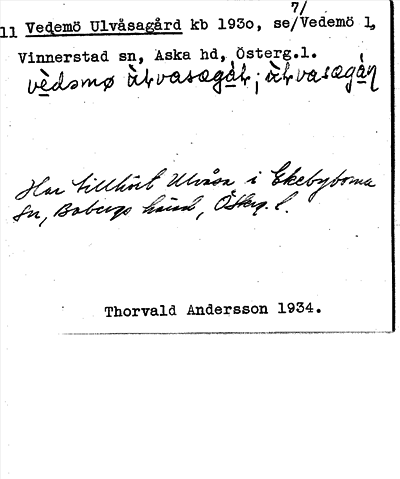 7/
11 Vedemö Ulvåsagård kb 1930, se/Vedemö 1,
Vinnerstad sn, Aska hd, Österg.l.
Har tillhört Ulvåsa i Ekebyborna
sn, Bobergs härad, Österg. l.
Thorvald Andersson 1934.